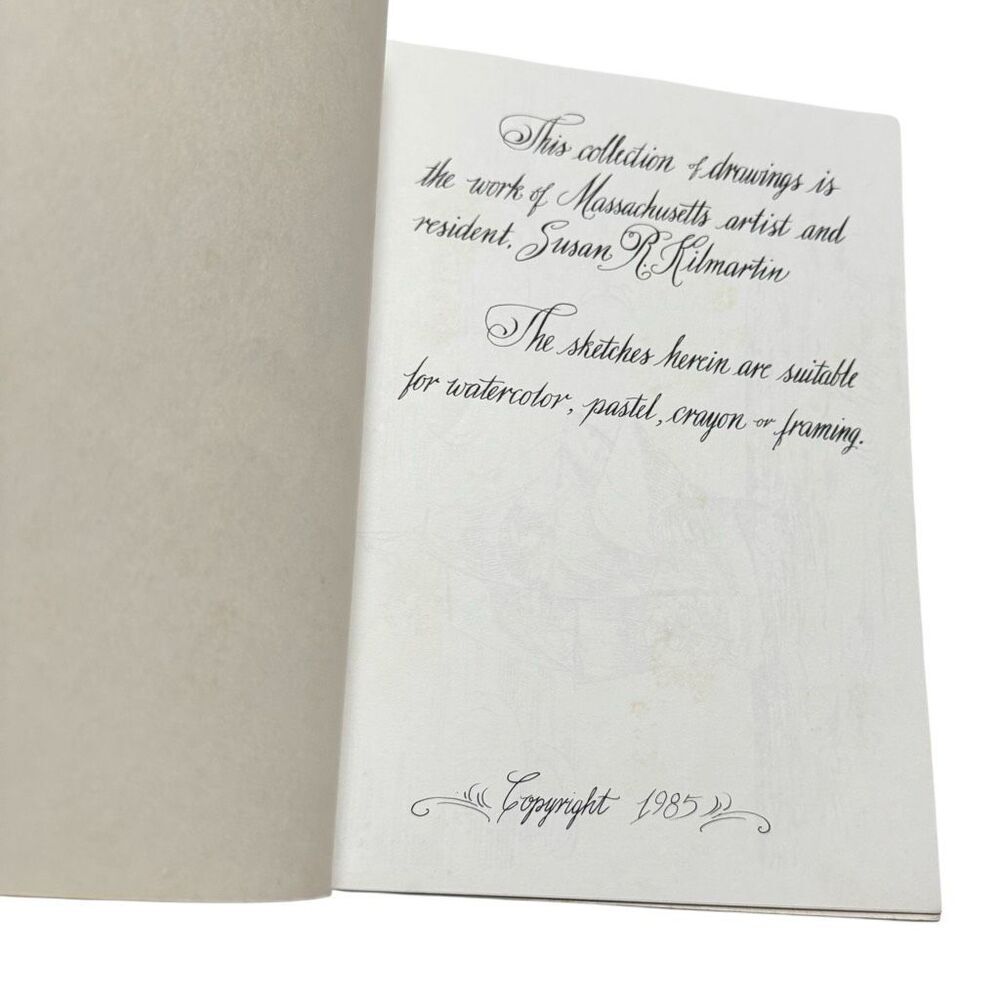 This collection of drawings is
the work of Massachusetts artist and
resident, Susan R. Kilmartin
The sketches herein are suitable
for watercolor, pastel, crayon or framing.
Copyright 1985